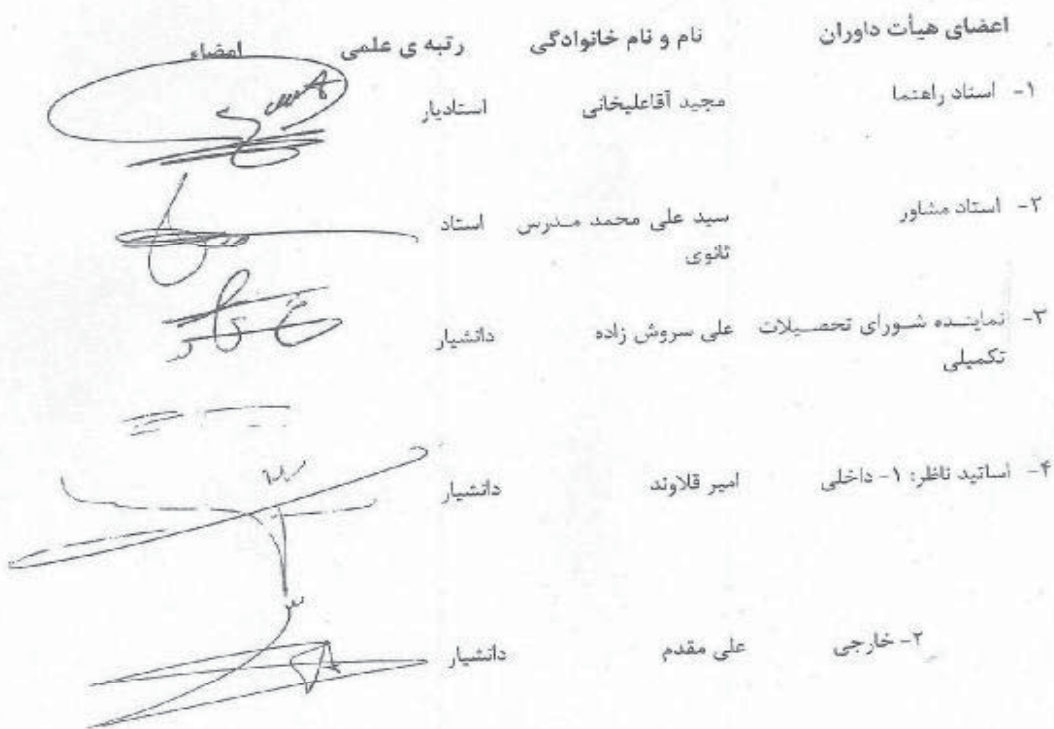 اعضای هیأت داوران نام و نام خانوادگی رتبه ی علمی امضاء
۱- استاد راهنما مجید آقاعلیخانی استادیار
۲- استاد مشاور سید علی محمد مـدرس استاد
ثانوی
۳- نماینـده شـورای تحصـیلات علی سروش زاده دانشیار
تکمیلی
۴- اساتید ناظر: ۱- داخلی امیر قلاوند دانشیار
۲- خارجی علی مقدم دانشیار